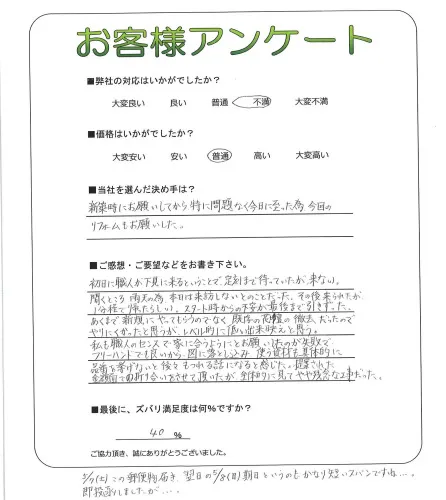 お客様アンケート
■弊社の対応はいかがでしたか?
大変良い 良い 普通 不満 大変不満
■価格はいかがでしたか?
大変安い 安い 普通 高い 大変高い
■当社を選んだ決め手は?
新築時にお願いしてから特に問題なく今日に至った為、今回の
リフォームもお願いした。
■ご感想・ご要望などをお書き下さい。
初日に職人が下見に来るということで、定刻まで待っていたが来ない。
聞くところ雨天の為、本日は来訪しないとのことだった。その後来られたが、
1分程で帰たらしい。スタート時からの不安が最後まで引きずった。
あくまで新規にやってもらうのでなく既存の の撤去だったので
やりにくかったと思うが、レベル的に低い出来映えと思う。
私も職人のセンスで家に合うようにとお願いしたのが失敗で
フリーハンドでも良いから、図に落とし込み使う資材も具体的に
品番を挙げないと後々もつれる話になると感じた。提案された
金額面で折り合いをさせて頂いたが、全体的に見てやや残念な工事だった。
■最後に、ズバリ満足度は何%ですか?
40 %
ご協力頂き、誠にありがとうございました。
5/7(土)この郵便物届き、翌日の5/8(日)期日というのもかなり短いスパンですね…。
即投函しましたが…。